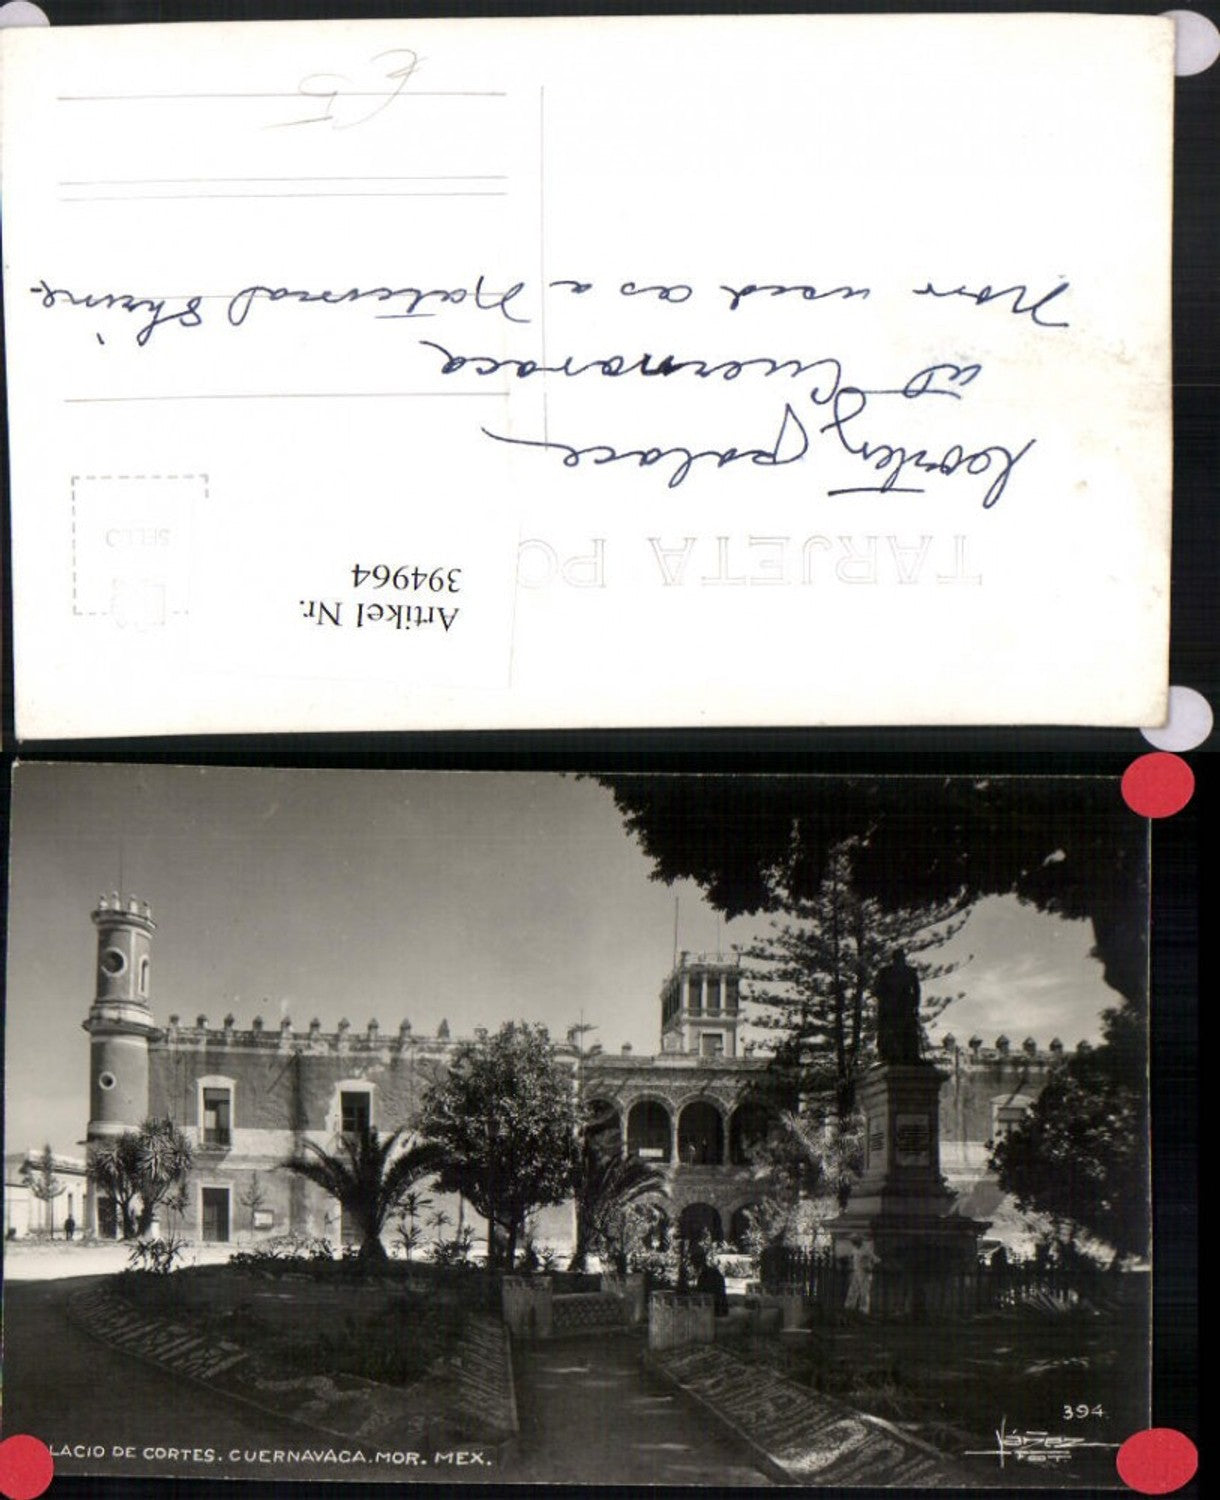 Artikel Nr.
394964
TARJETA PO
SELLO
Cortez palace,
at Cuernavaca
Now used as a National Shrine.
€5
394
Yáñez
FOT
LACIO DE CORTES. CUERNAVACA. MOR. MEX.